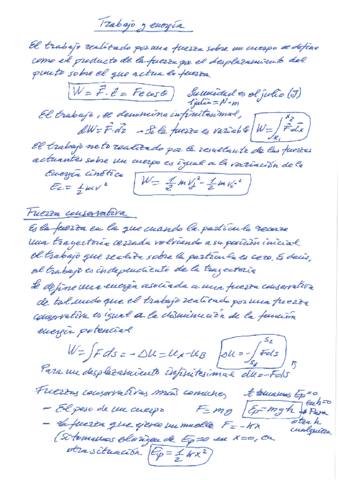 Trabajo y energía
El trabajo realizado por una fuerza sobre un cuerpo se define
como el producto de la fuerza por el desplazamiento del
punto sobre el que actua la fuerza
W = F⃗ · ℓ⃗ = Fℓ cos θ   Su unidad es el julio (J)
1 julio = N·m
El trabajo, se denomina infinitesimal,
dW = F⃗ dx⃗ - Si la fuerza es variable W = ∫ F⃗ dx⃗
El trabajo neto realizado por la resultante de las fuerzas
actuantes sobre un cuerpo es igual a la variación de la
Energía cinética
Ec = 1/2 mv²
Fuerza conservativa
Es la fuerza en la que cuando la partícula recorre
una trayectoria cerrada volviendo a su posición inicial
el trabajo que realiza sobre la partícula es cero. Es decir,
el trabajo es independiente de la trayectoria
Se define una energía asociada a una fuerza conservativa
de tal modo que el trabajo realizado por una fuerza
conservativa es igual a la disminución de la función
energía potencial
W = ∫F ds = -ΔU = UA - UB   ΔU = -∫ F ds
Para un desplazamiento infinitesimal dU = -F ds
Fuerzas conservativas más comunes
si tomamos Ep=0
en h=0
- El peso de un cuerpo   F = mg   Ep = mgh → Para
cualquier
- La fuerza que ejerce un muelle F = -kx
(Si tomamos el origen de Ep=0 en x=0, en
otra situación Ep = 1/2 kx²